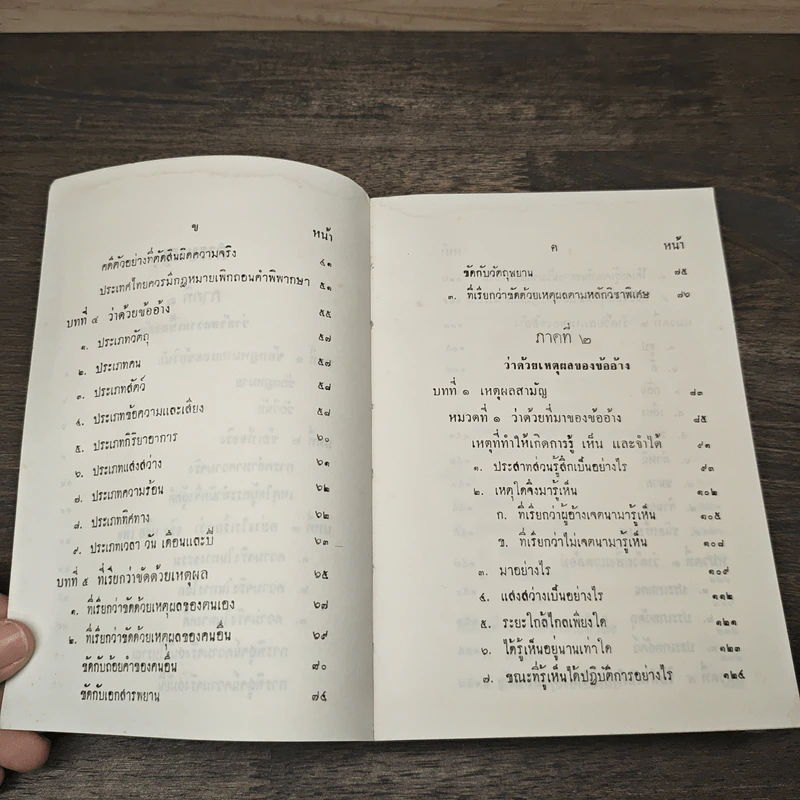 ข
หน้า
คดีตัวอย่างที่ตัดสินผิดความจริง ๔๑
ประเทศไทยควรมีกฎหมายเพิกถอนคำพิพากษา ๕๑
บทที่ ๔ ว่าด้วยข้ออ้าง ๕๕
๑. ประเภทวัตถุ ๕๗
๒. ประเภทคน ๕๗
๓. ประเภทสัตว์ ๕๘
๔. ประเภทข้อความและเสียง ๕๘
๕. ประเภทกิริยาอาการ ๖๐
๖. ประเภทแสงสว่าง ๖๑
๗. ประเภทความร้อน ๖๒
๘. ประเภททิศทาง ๖๒
๙. ประเภทเวลา วัน เดือนและปี ๖๓
บทที่ ๕ ที่เรียกว่าขัดด้วยเหตุผล ๖๕
๑. ที่เรียกว่าขัดด้วยเหตุผลของตนเอง ๖๗
๒. ที่เรียกว่าขัดด้วยเหตุผลของคนอื่น ๖๙
ขัดกับถ้อยคำของคนอื่น ๗๐
ขัดกับเอกสารพยาน ๗๔
ค
หน้า
ขัดกับวัตถุพยาน ๗๕
๓. ที่เรียกว่าขัดด้วยเหตุผลตามหลักวิชาพิเศษ ๗๖
ภาคที่ ๒
ว่าด้วยเหตุผลของข้ออ้าง
บทที่ ๑ เหตุผลสามัญ ๘๓
หมวดที่ ๑ ว่าด้วยที่มาของข้ออ้าง ๘๕
เหตุที่ทำให้เกิดการรู้ เห็น และจำได้ ๙๑
๑. ประสาทส่วนรู้สึกเป็นอย่างไร ๙๓
๒. เหตุใดจึงมารู้เห็น ๑๐๒
ก. ที่เรียกว่าผู้อ้างเจตนามารู้เห็น ๑๐๕
ข. ที่เรียกว่าไม่เจตนามารู้เห็น ๑๐๘
๓. มาอย่างไร ๑๐๙
๔. แสงสว่างเป็นอย่างไร ๑๑๒
๕. ระยะใกล้ไกลเพียงใด ๑๒๑
๖. ได้รู้เห็นอยู่นานเท่าใด ๑๒๓
๗. ขณะที่รู้เห็นได้ปฏิบัติการอย่างไร ๑๒๔